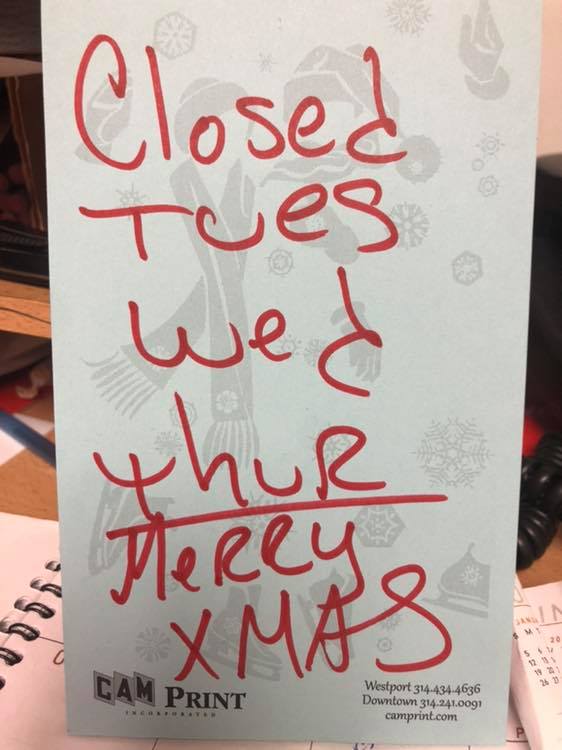 Closed
Tues
Wed
Thur
Merry
XMAS
CAM PRINT
INCORPORATED
Westport 314.434.4636
Downtown 314.241.0091
camprint.com